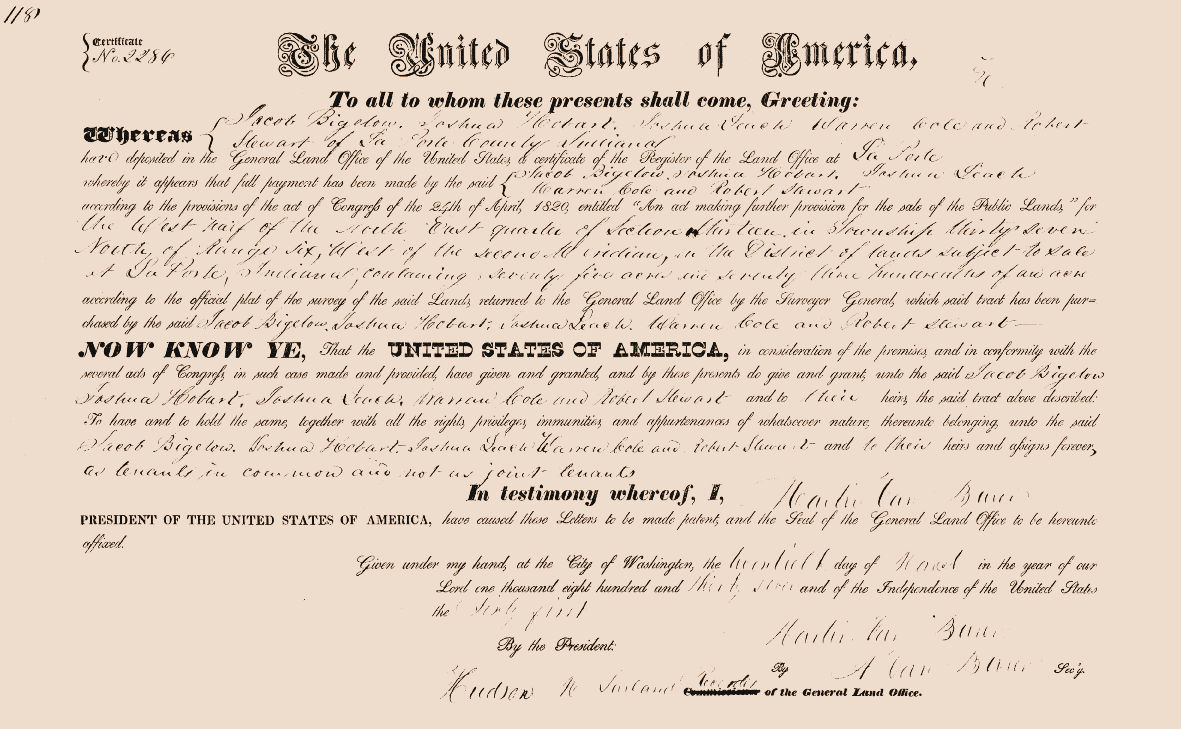 118
Certificate
No. 2286
The United States of America,
To all to whom these presents shall come, Greeting:
Whereas Jacob Bigelow. Joshua Hobart. Joshua Leach Warren Cole and Robert
Stewart of La Porte County Indiana
have deposited in the General Land Office of the United States, a certificate of the Register of the Land Office at La Porte
whereby it appears that full payment has been made by the said Jacob Bigelow, Joshua Hobart. Joshua Leach
Warren Cole and Robert Stewart
according to the provisions of the act of Congress of the 24th of April, 1820, entitled "An act making further provision for the sale of the Public Lands," for
the West half of the North East quarter of Section thirteen in Township thirty seven
North, of Range six, West of the second Meridian, in the District of lands subject to sale
at La Porte, Indiana, containing seventy five acres and seventy nine hundredths of an acre
according to the official plat of the survey of the said Lands, returned to the General Land Office by the Surveyor General, which said tract has been pur=
chased by the said Jacob Bigelow, Joshua Hobart. Joshua Leach. Warren Cole and Robert Stewart—
NOW KNOW YE, That the UNITED STATES OF AMERICA, in consideration of the premises, and in conformity with the
several acts of Congress, in such case made and provided, have given and granted, and by these presents do give and grant, unto the said Jacob Bigelow
Joshua Hobart. Joshua Leach. Warren Cole and Robert Stewart and to their heirs, the said tract above described:
To have and to hold the same, together with all the rights, privileges, immunities, and appurtenances of whatsoever nature, thereunto belonging, unto the said
Jacob Bigelow. Joshua Hobart. Joshua Leach Warren Cole and Robert Stewart and to their heirs and assigns forever,
as tenants in common and not as joint tenants
In testimony whereof, I, Martin Van Buren
PRESIDENT OF THE UNITED STATES OF AMERICA, have caused these Letters to be made patent, and the Seal of the General Land Office to be hereunto
affixed.
Given under my hand, at the City of Washington, the twentieth day of March in the year of our
Lord one thousand eight hundred and thirty seven and of the Independence of the United States
the Sixty first
By the President: Martin Van Buren
By A Van Buren Sec'y.
Hudson M Garland Recorder Commissioner of the General Land Office.